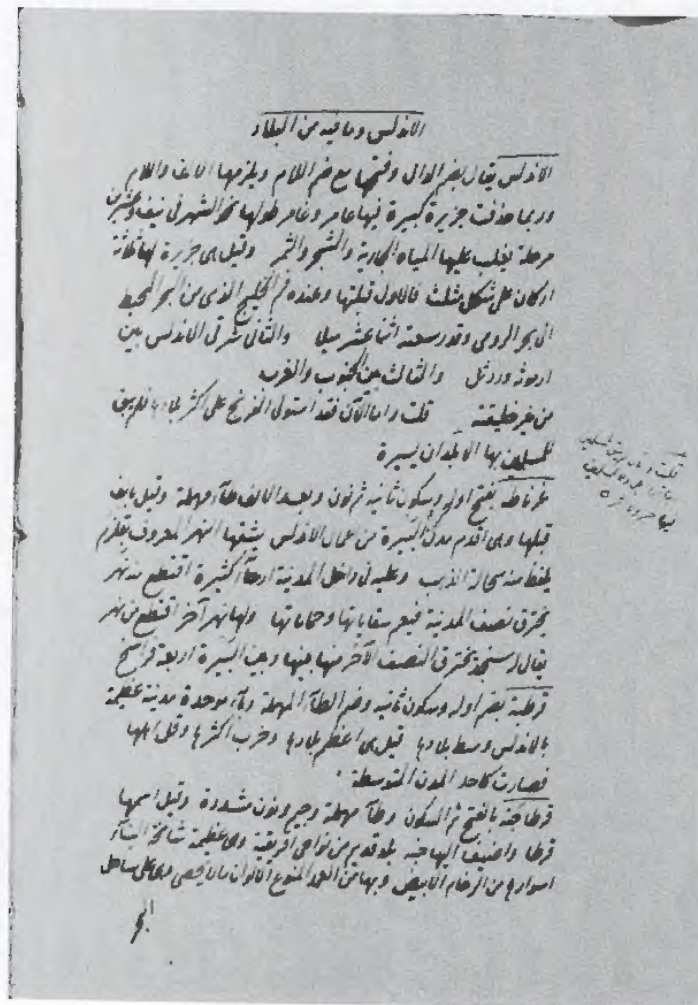 الاندلس وما فيه من البلاد
الاندلس يقال بضم الدال وفتحها مع ضم اللام ويلزمها الالف واللام
وربما حذفت جزيرة كبيرة فيها عامر وغامر طولها نحو الشهر في نيف وعشرين
مرحلة يغلب عليها المياه الجارية والشجر والثمر وقيل هي جزيرة لها ثلاثة
اركان على شكل مثلث فالاول قبلتها وعنده فم الخليج الذي من البحر المحيط
الى بحر الرومي وقدر سعته اثنا عشر ميلا والثاني شرقي الاندلس بين
اربونة وبرديل والثالث بين الجنوب والغرب
من قلت واما الآن فقد استولى الفرنج على اكثر بلادها فلم يبق
للمسلمين بها الا بلدان يسيرة
غرناطة بفتح اوله وسكون ثانيه ثم نون وبعد الالف طآء مهملة وقيل بالف
قبلها وهي اقدم مدن البيرة من اعمال الاندلس يشقها النهر المعروف بقلزم
يلقط منه سحالة الذهب وعليه في داخل المدينة ارحآء كثيرة اقتطع منه نهر
يخترق نصف المدينة فيعم سقاياتها وحماماتها ولها نهر آخر اقتطع من نهر
يقال له سنجل يخترق النصف الآخر منها بينها وبين البيرة اربعة فراسخ
قرطبة بضم اوله وسكون ثانيه وضم الطآء المهملة وبآء موحدة مدينة عظيمة
بالاندلس وسط بلادها قيل هي اعظم بلادها وخرب اكثرها وقل اهلها
فصارت كاحد المدن المتوسطة
قرطاجنة بالفتح ثم السكون وطآء مهملة وجيم ونون مشددة وقيل اسمها
قرطا واضيف اليها جنه بلد قديم من نواحي افريقية وهي عظيمة شامخة البنآء
اسوارها من الرخام الابيض وبها من العمد المنوع الالوان ما لا يحصى وهي على ساحل
البحر